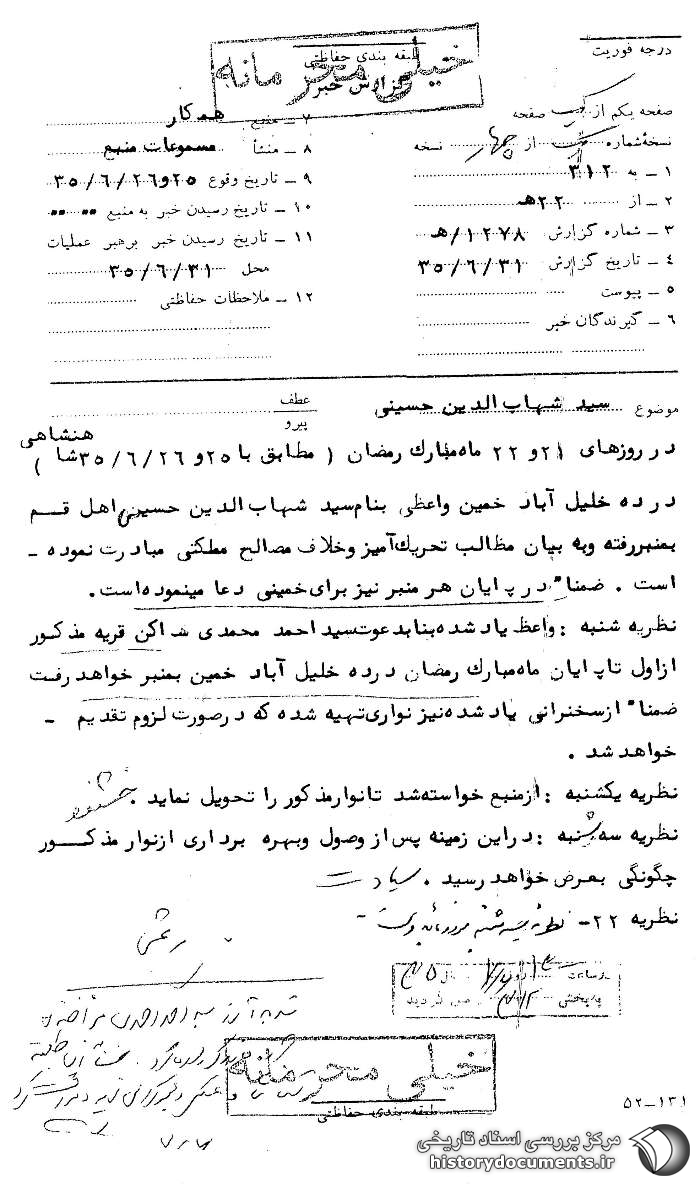 درجه فوریت
طبقه بندی حفاظتی
خیلی محرمانه
گزارش خبر
صفحه یکم از یک صفحه
نسخه شماره یک از چهار نسخه
۱ ـ به ۳۱۲
۲ ـ از ۲۲هـ
۳ ـ شماره گزارش ۱۲۷۸/هـ
۴ ـ تاریخ گزارش ۳۵/۶/۳۱
۵ ـ پیوست
۶ ـ گیرندگان خبر
۷ ـ منبع همکار
۸ ـ منشأ مسموعات منبع
۹ ـ تاریخ وقوع ۲۵و۳۵/۶/۲۶
۱۰ ـ تاریخ رسیدن خبر به منبع
۱۱ ـ تاریخ رسیدن خبر برهبر عملیات
محل ۳۵/۶/۳۱
۱۲ ـ ملاحظات حفاظتی
موضوع سید شهاب الدین حسینی
عطف
پیرو
در روزهای ۲۱و ۲۲ ماه مبارک رمضان ( مطابق با ۲۵و ۳۵/۶/۲۶ شاهنشاهی )
درده خلیل آباد خمین واعظی بنام سید شهاب الدین حسینی اهل قم
بمنبر رفته وبه بیان مطالب تحریک آمیز وخلاف مصالح مملکتی مبادرت نموده ـ
است . ضمنا" در پایان هر منبر نیز برای خمینی دعا مینموده است.
نظریه شنبه : واعظ یاد شده بنا بدعوت سید احمد محمدی ساکن قریه مذکور
ازاول تا پایان ماه مبارک رمضان درده خلیل آباد خمین بمنبر خواهد رفت
ضمنا" ازسخنرانی یاد شده نیز نواری تهیه شده که درصورت لزوم تقدیم ـ
خواهد شد .
نظریه یکشنبه : ازمنبع خواسته شد تا نوار مذکور را تحویل نماید .
نظریه سه شنبه : دراین زمینه پس از وصول وبهره برداری ازنوار مذکور
چگونگی بعرض خواهد رسید .
نظریه ۲۲ـ نظریه سه شنبه مورد تأیید است ـ
خیلی محرمانه
طبقه بندی حفاظتی
۵۲ـ۱۳۱
مرکز بررسی اسناد تاریخی
historydocuments.ir